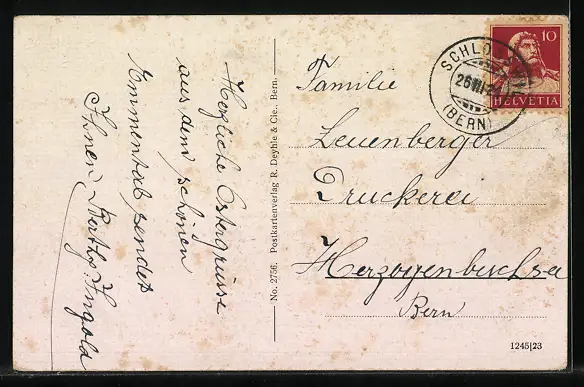 Herzliche Ostergrüsse
aus dem schönen
Emmental sendet
Ihnen Berthy Hingold
No. 2756. Postkartenverlag R. Deyhle & Cie., Bern.
10
HELVETIA
(BERN)
Familie
Leuenberger
Druckerei
Herzogenbuchsee
Bern
1245|23